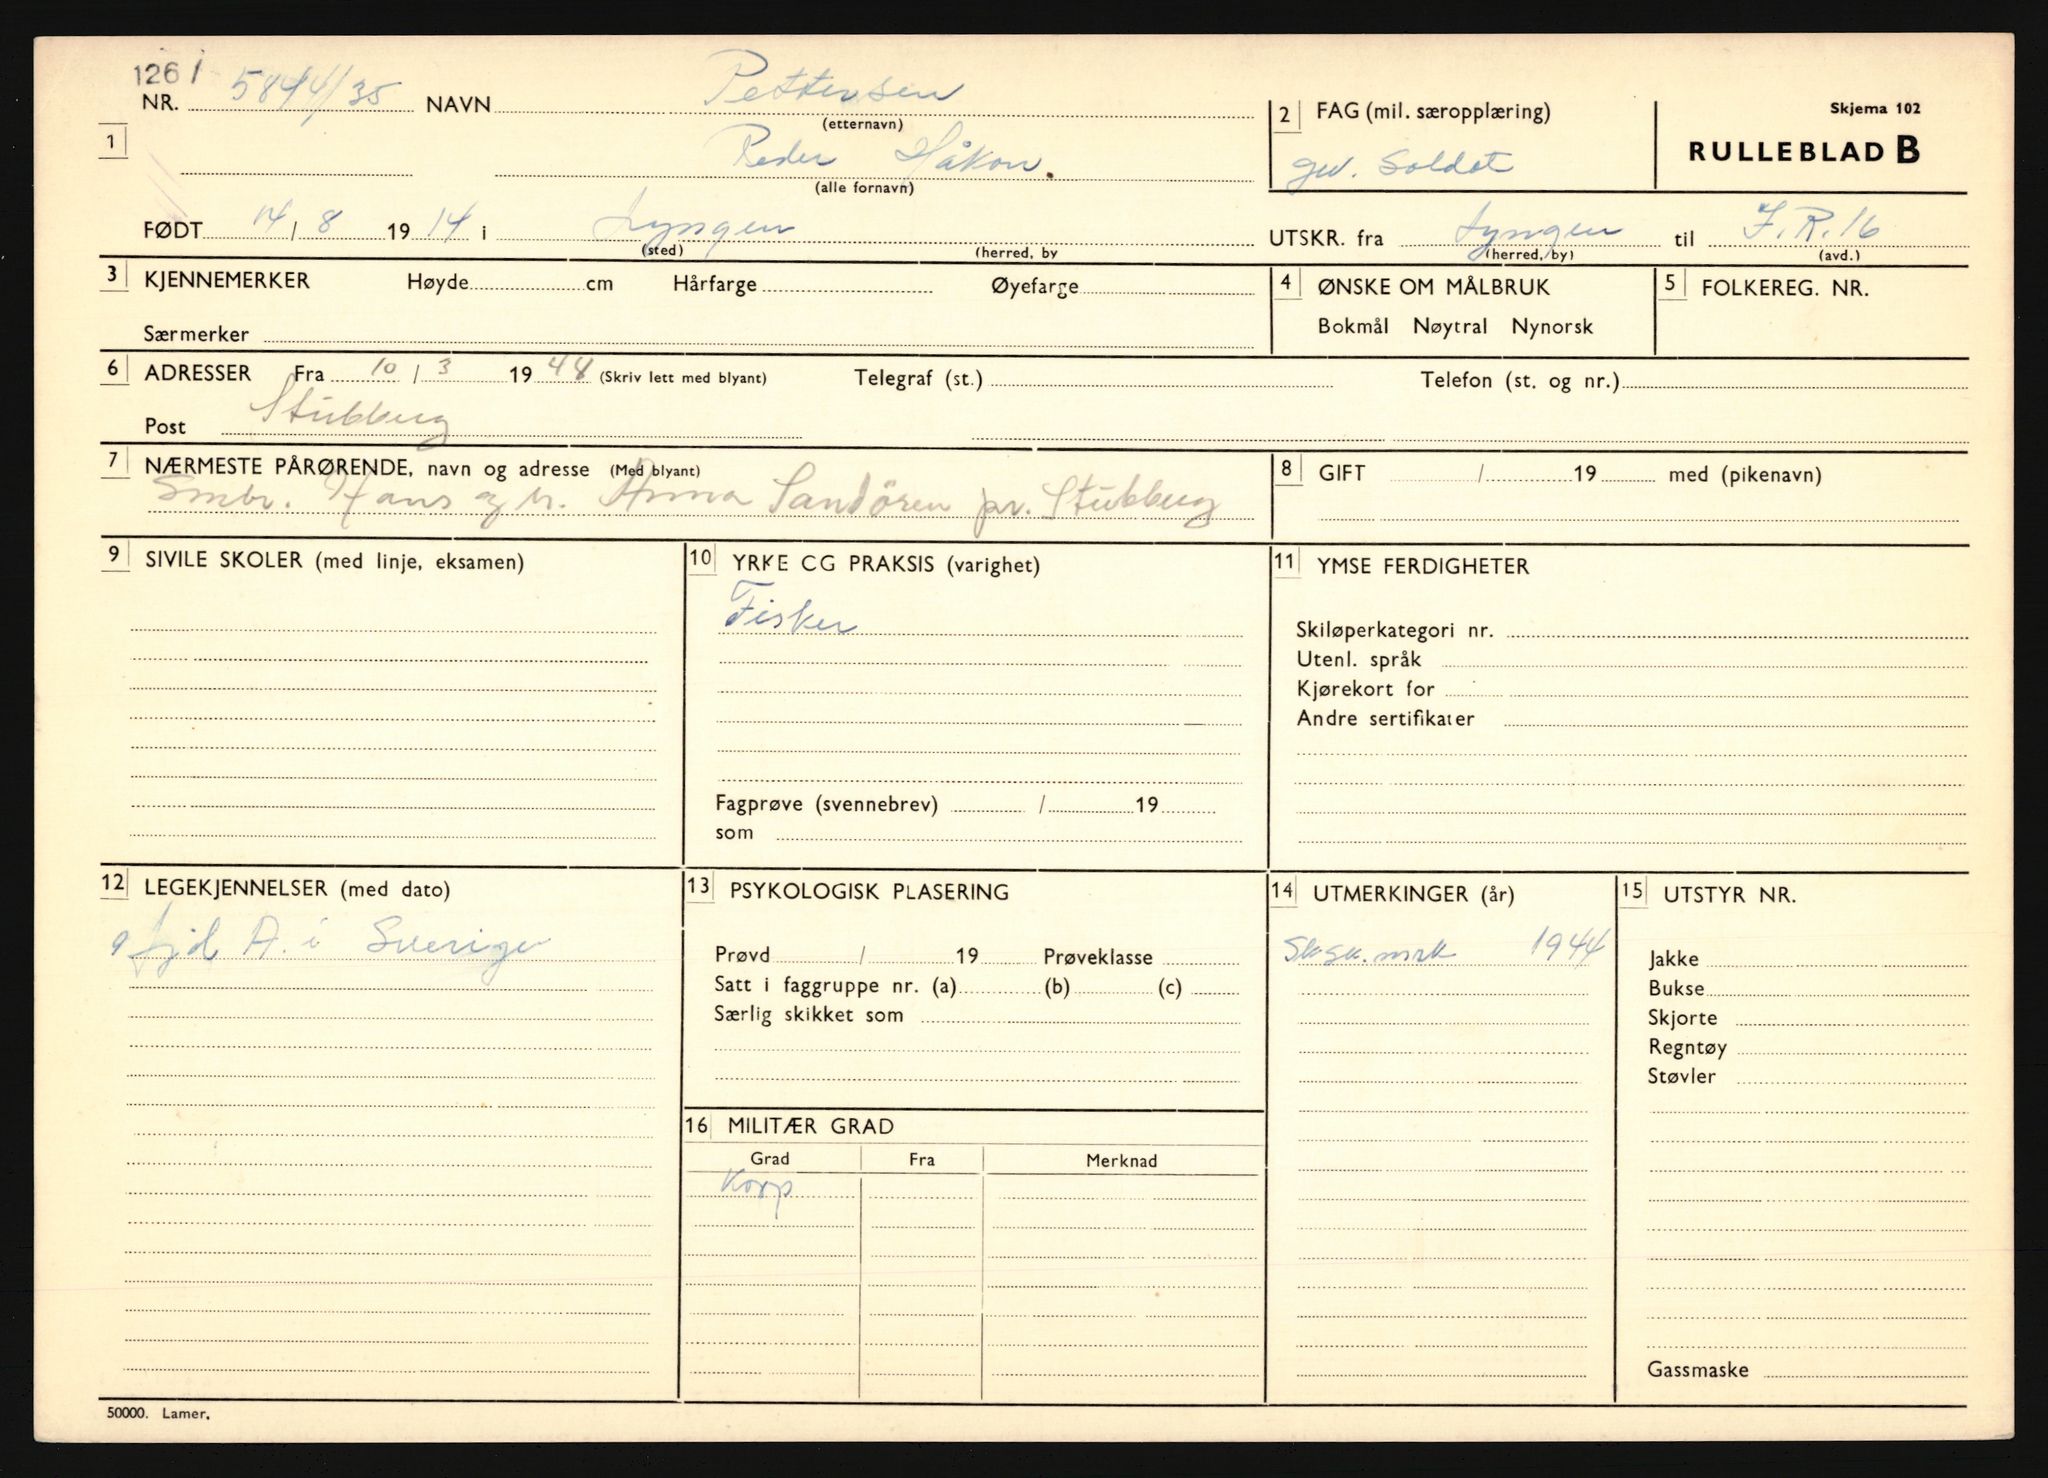 1261
NR. 5844/35 NAVN Pettersen
(etternavn)
1 Peder Håkon.
(alle fornavn)
2 FAG (mil. særopplæring)
gev. Soldat
Skjema 102
RULLEBLAD B
FØDT 14 / 8 19 14 i Lyngen
(sted) (herred, by
UTSKR. fra Lyngen til I.R. 16
(herred, by) (avd.)
3 KJENNEMERKER Høyde cm Hårfarge Øyefarge
Særmerker
4 ØNSKE OM MÅLBRUK
Bokmål Nøytral Nynorsk
5 FOLKEREG. NR.
6 ADRESSER Fra 10 / 3 19 44 (Skriv lett med blyant) Telegraf (st.) Telefon (st. og nr.)
Post Stubbeng
7 NÆRMESTE PÅRØRENDE, navn og adresse (Med blyant)
Smbr. Hans og h. Anna Sandören pr. Stubbeng
8 GIFT / 19 med (pikenavn)
9 SIVILE SKOLER (med linje, eksamen)
10 YRKE CG PRAKSIS (varighet)
Fisker
Fagprøve (svennebrev) / 19
som
11 YMSE FERDIGHETER
Skiløperkategori nr.
Utenl. språk
Kjørekort for
Andre sertifikater
12 LEGEKJENNELSER (med dato)
gjd A. i Sverige
13 PSYKOLOGISK PLASERING
Prøvd / 19 Prøveklasse
Satt i faggruppe nr. (a) (b) (c)
Særlig skikket som
14 UTMERKINGER (år)
Sk.sk.mrk 1944
15 UTSTYR NR.
Jakke
Bukse
Skjorte
Regntøy
Støvler
Gassmaske
16 MILITÆR GRAD
Grad Fra Merknad
Korp
50000. Lamer.